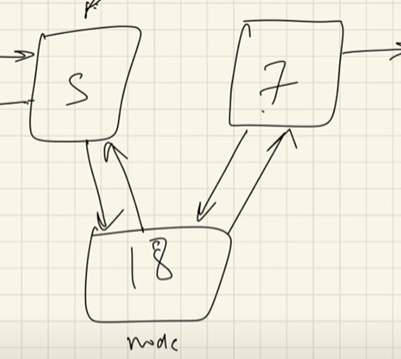 5 7
18
node